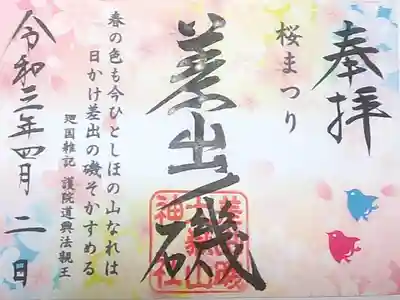 奉拝
桜まつり
差出ノ磯
差出磯
大嶽山
神社
春の色も今ひとしほの山なれは
日かけ差出の磯そかすめる
廻国雑記 護院道興法親王
令和三年四月二日